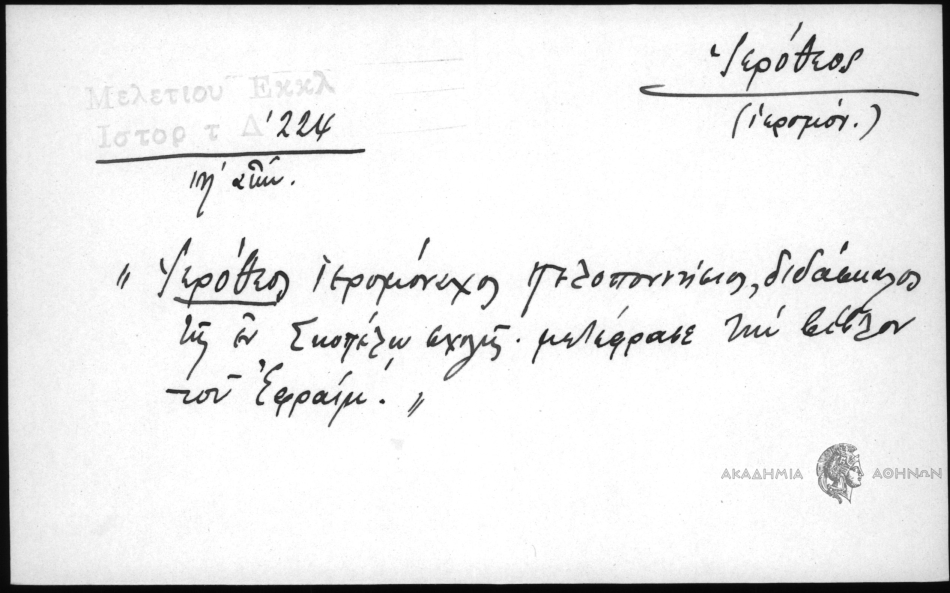 Ἱερόθεος
(ἱερομόν.)
Μελετιου Εκκλ
Ιστορ τ Δ' 224
ιη' αἰών.
" Ἱερόθεος ἱερομόναχος Πελοποννήσιος, διδάσκαλος
τῆς ἐν Σκοπέλῳ σχολῆς. μετέφρασε τὴν βίβλον
τοῦ Ἐφραίμ. "
ΑΚΑΔΗΜΙΑ ΑΘΗΝΩΝ